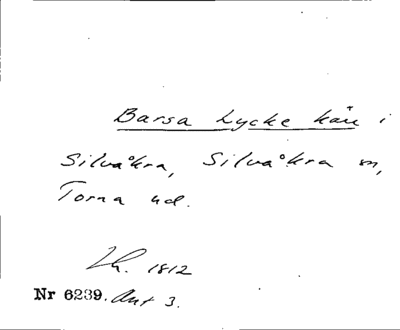 Barsa Lycke kär i
Silvåkra, Silvåkra sn,
Torna hd.
Lh. 1812
Nr 6239. Akt 3.